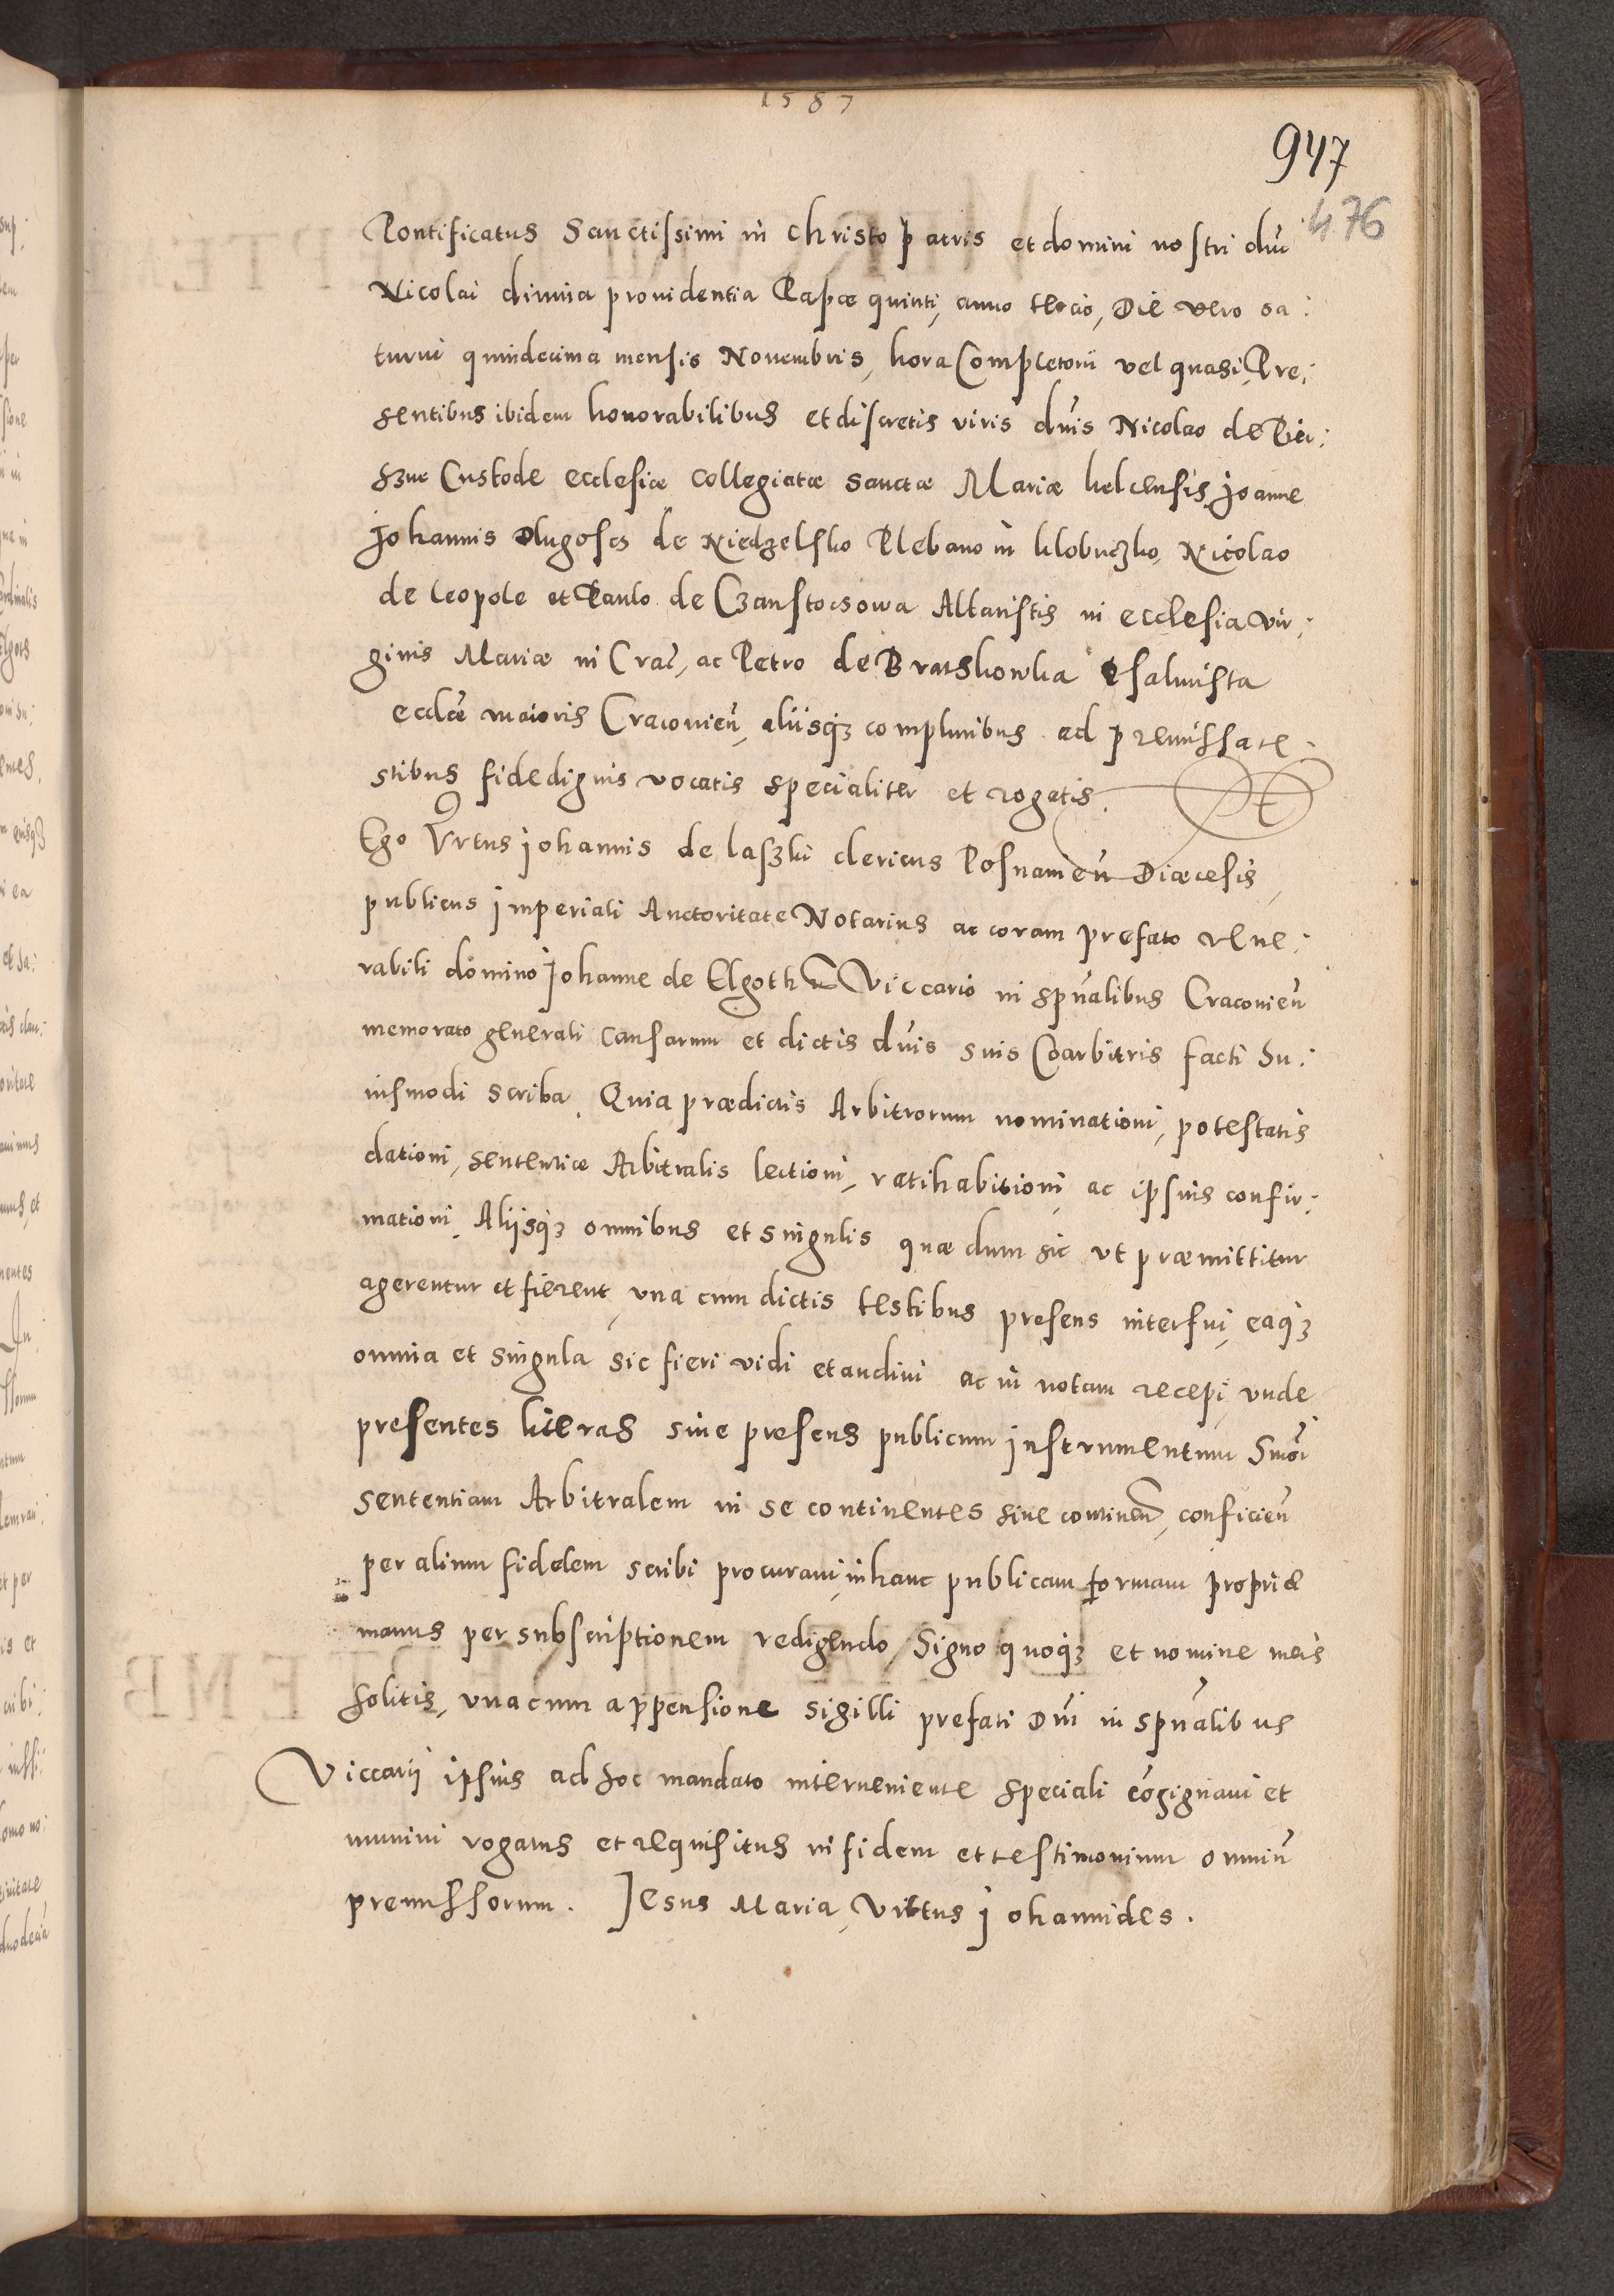 1587
947
476
Pontificatus Sanctissimi in christo patris et domini nostri dni
Nicolai diuina prouidentia Papæ quinti, anno tercio, Die vero sa:
turni quindecima mensis Nouembris, hora Completorii vel quasi, Pre:
sentibus ibidem honorabilibus et discretis viris dnis Nicolao de
Custode ecclesiæ collegiatæ sanctæ Mariæ kelcensis, Joanne
Johannis Dlugosch de Niedzelsko Plebano in klobuczko, Nicolao
de leopole et Paulo de Czanstocsowa Altaristis in ecclesia vir:
ginis Mariæ in Crac, ac Petro de Bratskowka psalmista
ecclæ maioris Cracovien, aliisq3 complunibus ad premissa te:
stibus fidedignis vocatis specialiter et rogatis.
Ego Vrtus Johannis de laszki clericus Posnanien Diæcesis,
publicus imperiali Auctoritate Notarius ac coram prefato vene:
rabili domino Johanne de Elgoth Viccario in spualibus Cracouien
memorato generali causarum et dictis dnis suis Coarbitris facti hu:
iusmodi scriba. Quia prædictis Arbitrorum nominationi, potestatis
dationi, sententiæ Arbitralis lectioni, ratihabitioni ac ipsius confir:
mationi, Aliisq3 omnibus et singulis quæ dum sic vt præmittitur
agerentur et fierent, vna cum dictis testibus presens interfui, eaq3
omnia et singula sic fieri vidi et audiui ac in notam recepi, vnde
presentes literas siue presens publicum instrumentum
sententiam Arbitralem in se continentes siue continen, conficien
per alium fidelem scribi procuraui, in hanc publicam formam propriæ
manus per subscriptionem redigendo, Signo quoq3 et nomine meis
solitis, vna cum appensione sigilli prefati Dni in spualibus
Viccarii ipsius ad hoc mandato interueniente speciali cosignaui et
muniui rogatus et requisitus in fidem et testimonium omniu
premissorum. Jesus Maria, Virtus Johannides.